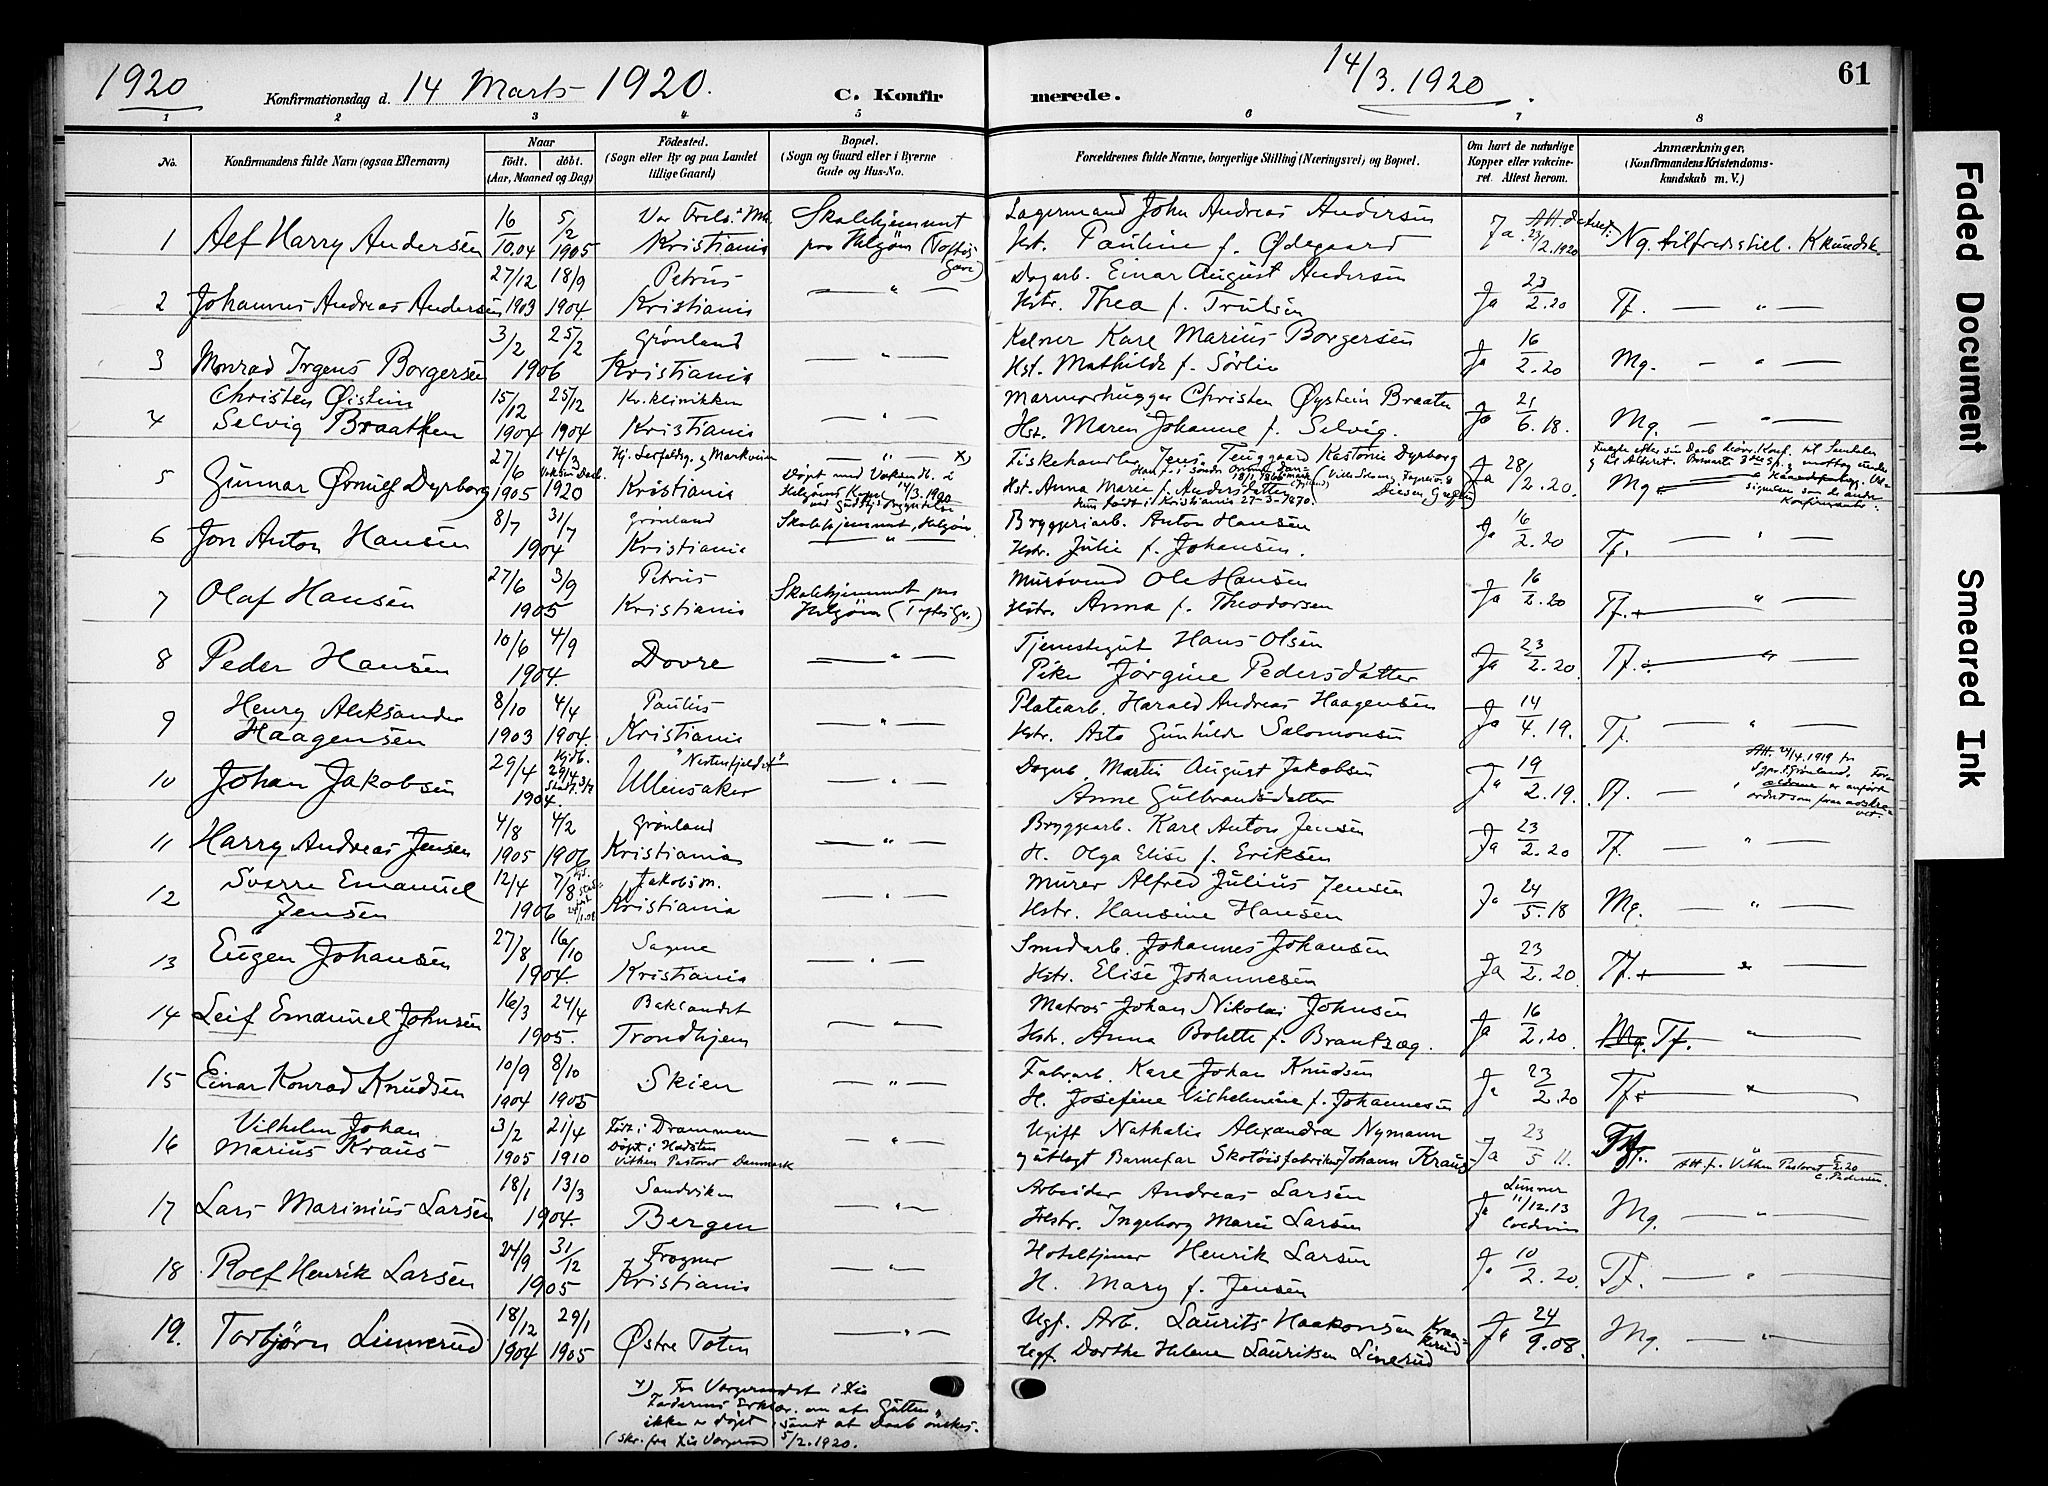 1920
Konfirmationsdag d. 14 Marts 1920.
C. Konfirmerede.
14/3. 1920
61
1 2 3 4 5 6 7 8
No.
Konfirmandens fulde Navn (ogsaa Efternavn)
Naar
født. døbt.
(Aar, Maaned og Dag)
Fødested.
(Sogn eller By og paa Landet
tillige Gaard)
Bopæl.
(Sogn og Gaard eller i Byerne
Gade og Hus-No.
Forældrenes fulde Navne, borgerlige Stilling (Næringsvei) og Bopæl.
Om havt de naturlige
Kopper eller vakcine-
ret. Attest herom.
Anmærkninger,
(Konfirmandens Kristendoms-
kundskab m. V.)
16/10.04 5/2 1905 Vor Frels. Skolehjemmet Lagermand John Andreas Andersen
1 Alf Harry Andersen Kristiania paa Helgøen (Toftes Gave) Hst. Pauline f. Ødegaard Ja 2.1920 Ng. tilfredsstil. Kkundsk.
27/12 18/9 Petrus Dagarb. Einar August Andersen 23
2 Johannes Andreas Andersen 1903 1904. Kristiania — " — Hstr. Thea f. Trulsen Ja 2.20 Tf. — " —
3/2 25/2 Grønland Kelner Karl Marius Borgersen 16
3 Monrad Irgens Borgersen 1906 Kristiania — " — Hst. Mathilde f. Sörlie Ja 2.20 Mg. — " —
Christen Øistein 15/12 25/12 Kv. klinikken Marmorhugger Christen Øystein Braaten 21
4 Selvig Braathen 1904 1904 Kristiania — " — Hst. Maren Johanne f. Selvig. Ja 6.18. Mg. — " —
27/6 14/3 Markveien — " — x) Fiskehandler Jens Kastonie Dyrborg
5 Gunnar Ørnulf Dyrborg 1905 1920 Kristiania Døpt med 14/3.1920 Hst. Anna Marie f. Andersdatter Ja 28/2.20. Mg
hun født i Kristiania 27-3-1870. Konfirmanter.
8/7 31/7 Grønland Skolehjemmet, Helgøen. Bryggeriarb. Anton Hansen 16
6 Jon Anton Hansen 1904 Kristiania — " — Hstr. Julie f. Johansen. Ja 2.20 Tf. — " —
27/6 3/9 Petrus Skolehjemmet paa Mursvend Ole Hansen 16
7 Olaf Hansen 1905 Kristiania Helgøen (Toftes Gv.) Hstr. Anna f. Theodorsen Ja 2.20 Tf. — " —
10/6 4/9 Tjenestegut Hans Olsen 23
8 Peder Hansen 1904. Dovre — " — Pike Jörgine Pedersdatter Ja 2.20 Tf. — " —
Henry Aleksander 8/10 4/4 Paulus Platearb. Harald Andreas Haagensen 14
9 Haagensen 1903 1904. Kristiania — " — Hstr. Asta Gunhilde Salomonsen Ja 4.19. Tf. — " —
29/4 Hjdb. 29/4 "Nestenfjeldet" Dagarb. Martin August Jakobsen 19 Att. 4.1919 fr
10 Johan Jakobsen 1904. Ullensaker — " — Anne Gulbrandsdatter Ja 2.19. Tf. —
4/8 4/2 Grønland Bryggearb. Karl Anton Jensen 23
11 Harry Andreas Jensen 1905 1906 Kristiania — " — H. Olga Elise f. Eriksen Ja 2.20 Tf. — " —
Sverre Emanuel 12/4 7/8 Jakobs m. Murer Alfred Julius Jensen 24
12 Jensen 1906 Kristiania — " — Hstr. Hansine Hansen Ja 5.18 Mg. — " —
27/8 16/10 Sagene Smedarb. Johannes Johansen 23
13 Eugen Johansen 1904. Kristiania — " — Hstr. Elise Johannesen Ja 2.20. Tf. — " —
16/3 24/4 Baklandet Matros Johan Nikolai Johnsen 16
14 Leif Emanuel Johnsen 1905. Trondhjem — " — Hstr. Anna Bolette f. Brantzæg. Ja 2.20. Mg. Tf. "
10/9 8/10 Fabrarb. Karl Johan Knudsen 23
15 Einar Konrad Knudsen 1904 1905 Skien — " — H. Josefine Vilhelmine f. Johannesen Ja 2.20 Tf. "
Vilhelm Johan 3/2 21/4 Født i Drammen Ugift Nathalie Alexandra Nymann 23
16 Marius Kraus 1905 1910 Døpt i Hadsten Vitken Pastorat Danmark — " — og utlagt Barnefar Skotöisfabrikør Johann Kraus Ja 5 11. Tf. Att. f. Vitken Pastorat 2.20
18/1 13/3 Sandviken Arbeider Andreas Larsen Lunner
17 Lars Marinius Larsen 1904. Bergen — " — Hstr. Ingeborg Marie Larsen Ja 11/12.13 Mg. — " —
24/9 31/12 Frogner Hoteltjener Henrik Larsen 10
18 Rolf Henrik Larsen 1905 Kristiania — " — H. Mary f. Jensen Ja 2.20. Tf. — " —
18/12 29/1 Ugf. Arb. Laurits Haakonsen 24
19. Torbjörn Linnerud 1904 1905 Østre Toten — " — Ugf. Dorthe Helene Lauritsen Linerud Ja 9.08. Mg. — " —
x) Fra Vergeraadet i Kra
Faderens Erklær. om at Gutten
ikke er døpt samt at Daab ønskes.
(Skr. fra Kra Vergeraad 5/2.1920.
Faded Document
Smeared Ink